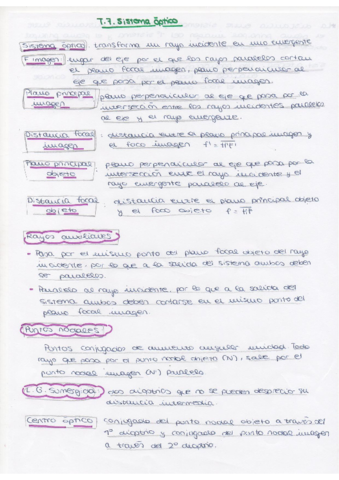 T.7. Sistema óptico
Sistema óptico: transforma un rayo incidente en uno emergente
F' imagen: lugar del eje por el que los rayos paralelos cortan
el plano focal imagen, plano perpendicular al
eje que pasa por el foco imagen.
Plano principal imagen: plano perpendicular al eje que pasa por la
intersección entre los rayos incidentes paralelos
al eje y el rayo emergente.
Distancia focal imagen: distancia entre el plano principal imagen y
el foco imagen
Plano principal objeto: plano perpendicular al eje que pasa por la
intersección entre el rayo incidente y el
rayo emergente paralelo al eje.
Distancia focal objeto: distancia entre el plano principal objeto
y el foco objeto
Rayos auxiliares
• Pasa por el mismo punto del plano focal objeto del rayo
incidente, por lo que a la salida del sistema ambos deben
ser paralelos.
• Paralelo al rayo incidente, por lo que a la salida del
sistema ambos deben cortarse en el mismo punto del
plano focal imagen.
Puntos nodales:
Puntos conjugados de aumento angular unidad. Todo
rayo que pasa por el punto nodal objeto (N), sale por el
punto nodal imagen (N') paralelo
dos dioptrios que no se pueden despreciar su
distancia intermedia
Centro óptico: conjugado del punto nodal objeto a través del
1º dioptrio y conjugado del punto nodal imagen
a través del 2º dioptrio.